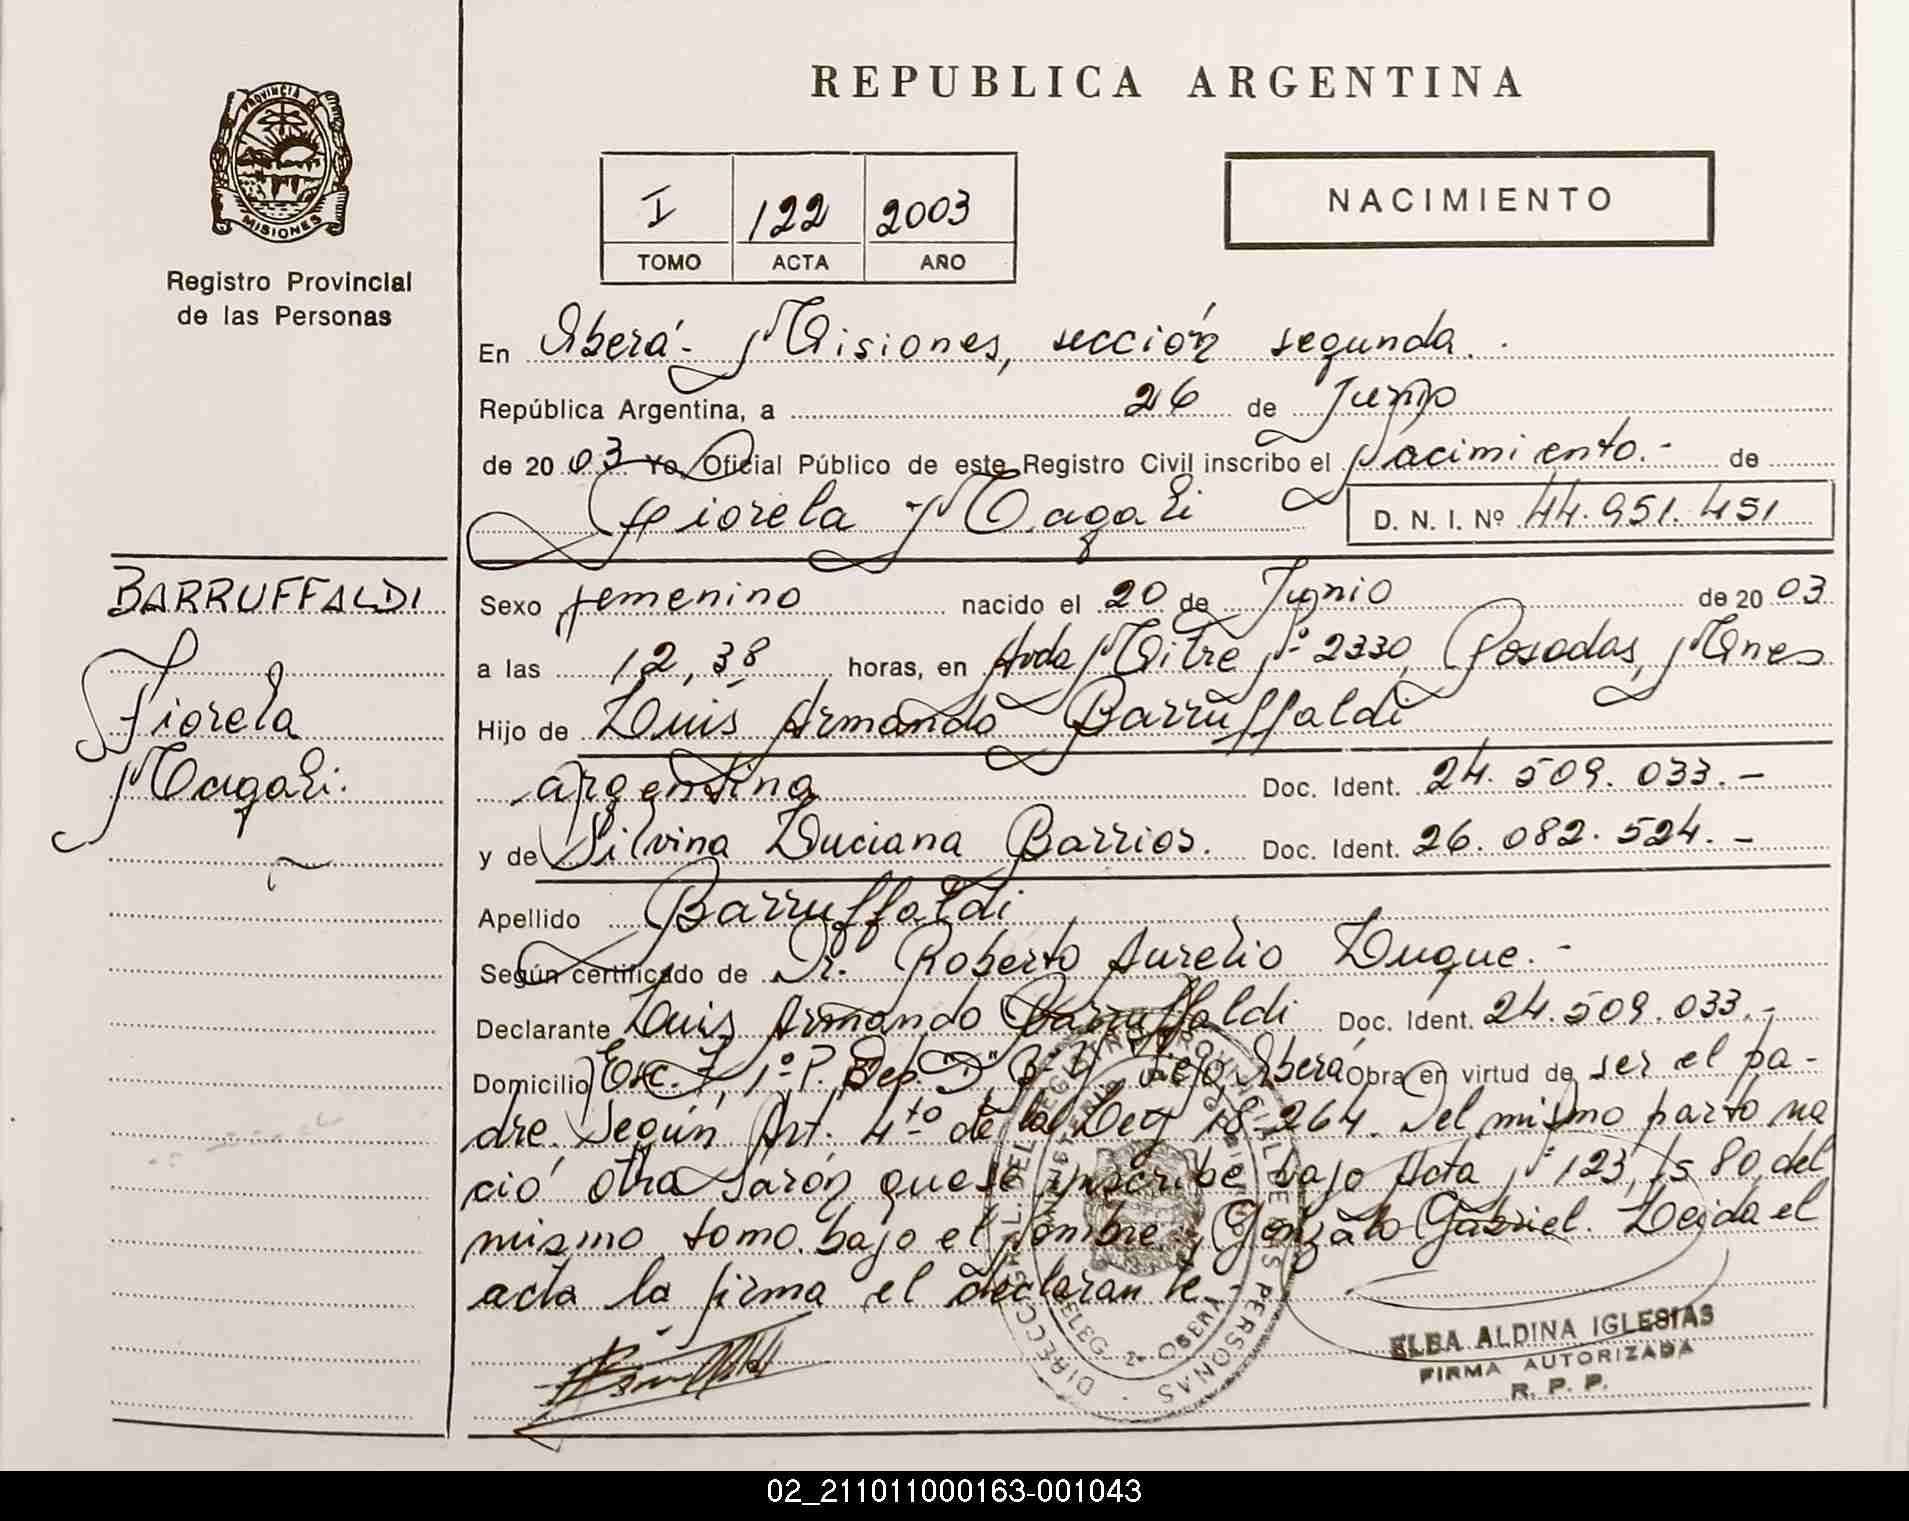 REPUBLICA ARGENTINA
PROVINCIA DE
MISIONES
Registro Provincial
de las Personas
I 122 2003
TOMO ACTA AÑO
NACIMIENTO
En Oberá - Misiones, sección segunda.
República Argentina, a 26 de Junio
de 2003 Yo Oficial Público de este Registro Civil inscribo el Nacimiento.- de
Fiorela Magali
D. N. I. Nº 44.951.451
BARRUFFALDI
Fiorela
Magali.
Sexo femenino nacido el 20 de Junio de 2003
a las 12,38 horas, en Avda Mitre Nº 2330, Posadas, Mnes
Hijo de Luis Armando Barruffaldi
argentina Doc. Ident. 24.509.033.-
y de Silvina Luciana Barrios. Doc. Ident. 26.082.524.-
Apellido Barruffaldi
Según certificado de Dr. Roberto Aurelio Duque.-
Declarante Luis Armando Barruffaldi Doc. Ident. 24.509.033.-
Domicilio Esc. 7, 1º P. Dep. "D", Oberá Obra en virtud de ser el pa-
dre. Según Art. 4to de la Ley 18.264. Del mismo parto na
ció otra Varón que se inscribe bajo Acta Nº 123, Fs 80, del
mismo tomo bajo el nombre Gonzalo Gabriel. Leida el
acta la firma el declarante
DIRECC. GRAL. DEL REGISTRO PROVINCIAL DE LAS PERSONAS
DELEG. 2ª OBERA
ELBA ALDINA IGLESIAS
FIRMA AUTORIZADA
R. P. P.
02_211011000163-001043